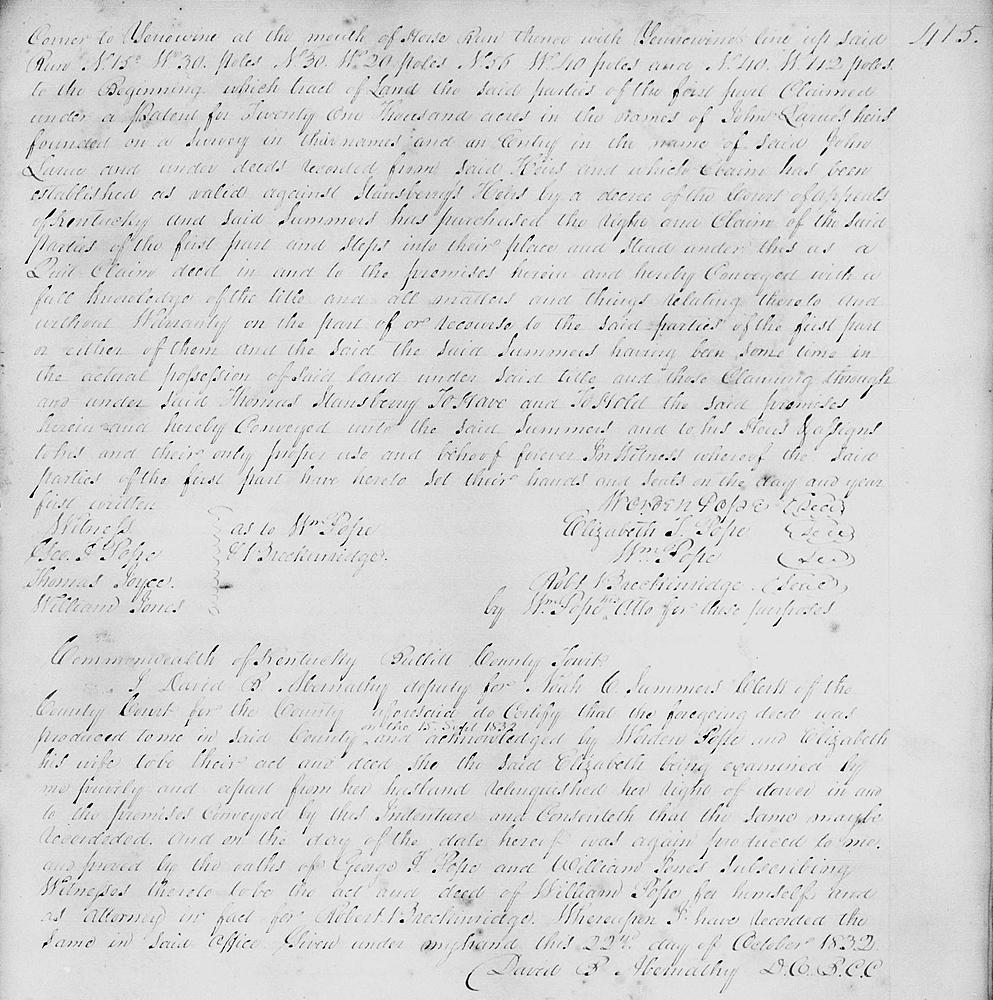 415.
Corner to Younewine at the mouth of Horse Run thence with Younewines line up said
Run N 15° W 30. poles N 30. W 20 poles N 56 W 40 poles and N 40. W 42 poles.
to the Beginning. which tract of Land the said parties of the first part Claimed
under a Patent for Twenty One Thousand acres in the names of John Larue's heirs
founded on a survey in their names and an Entry in the name of said John
Larue and under deeds recorded from said Heirs and which Claim has been
established as valid against Stansberry's Heirs by a decree of the Court of appeals
of Kentucky and said Summers has purchased the right and Claim of the said
Parties of the first part and steps into their place and stead under this as a
Quit Claim deed in and to the premises herein and hereby Conveyed with a
full knowledge of the title and all matters and things relating thereto and
without Warranty on the part of or recourse to the said parties of the first part
or either of them and the said the said Summers having been some time in
the actual possession of said land under said title and those Claiming through
and under said Thomas Stansberry To Have and To Hold the said premises
herein and hereby Conveyed unto the said Summers and to his Heirs & assigns
to his and their only proper use and behoof forever In Witness whereof the said
parties of the first part have hereto set their hands and seals on the day and year
first written
Worden Pope (Seal)
Witness as to Wm Pope Elizabeth T. Pope (Seal)
Geo. T Pope Breckinridge. Wm Pope (Seal)
Thomas Joyce. Robt Breckinridge (Seal)
William Jones by Wm Pope Atto for these purposes
Commonwealth of Kentucky Bullitt County Towit
I David B Abernathy deputy for Noah C Summers Clerk off the
County Court for the County aforesaid do Certify that the foregoing deed was
on the 15 Sept 1832
produced to me in said County and acknowledged by Worden Pope and Elizabeth
his wife to be their act and deed she the said Elizabeth being examined by
me privily and apart from her husband relinquished her right of dower in and
to the premises Conveyed by this Indenture and Consenteth that the same may be
recordeded. And on the day of the date hereof was again produced to me.
and proved by the oaths of George T Pope and William Jones Subscribing
Witnesses thereto to be the act and deed of William Pope for himself and
as attorney in fact for Robert Breckinridge. Whereupon I have recorded the
same in said office. Given under my hand this 22nd day of October 1832.
David B Abernathy D.C.B.C.C